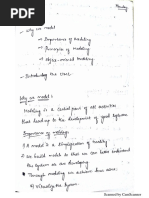 Monday
→ Why we model
→ Importance of modeling
→ Principles of modeling
→ Object-oriented modeling
→ Introducing the UML
Why we model:
Modeling is a central part of all activities
that leading to the development of good system.
Importance of modeling:
A model is a simplification of reality
→ We build model so that we can better understand
the system we are developing.
→ Through modeling we achieve four aims.
Visualize the system.
Scanned by CamScanner